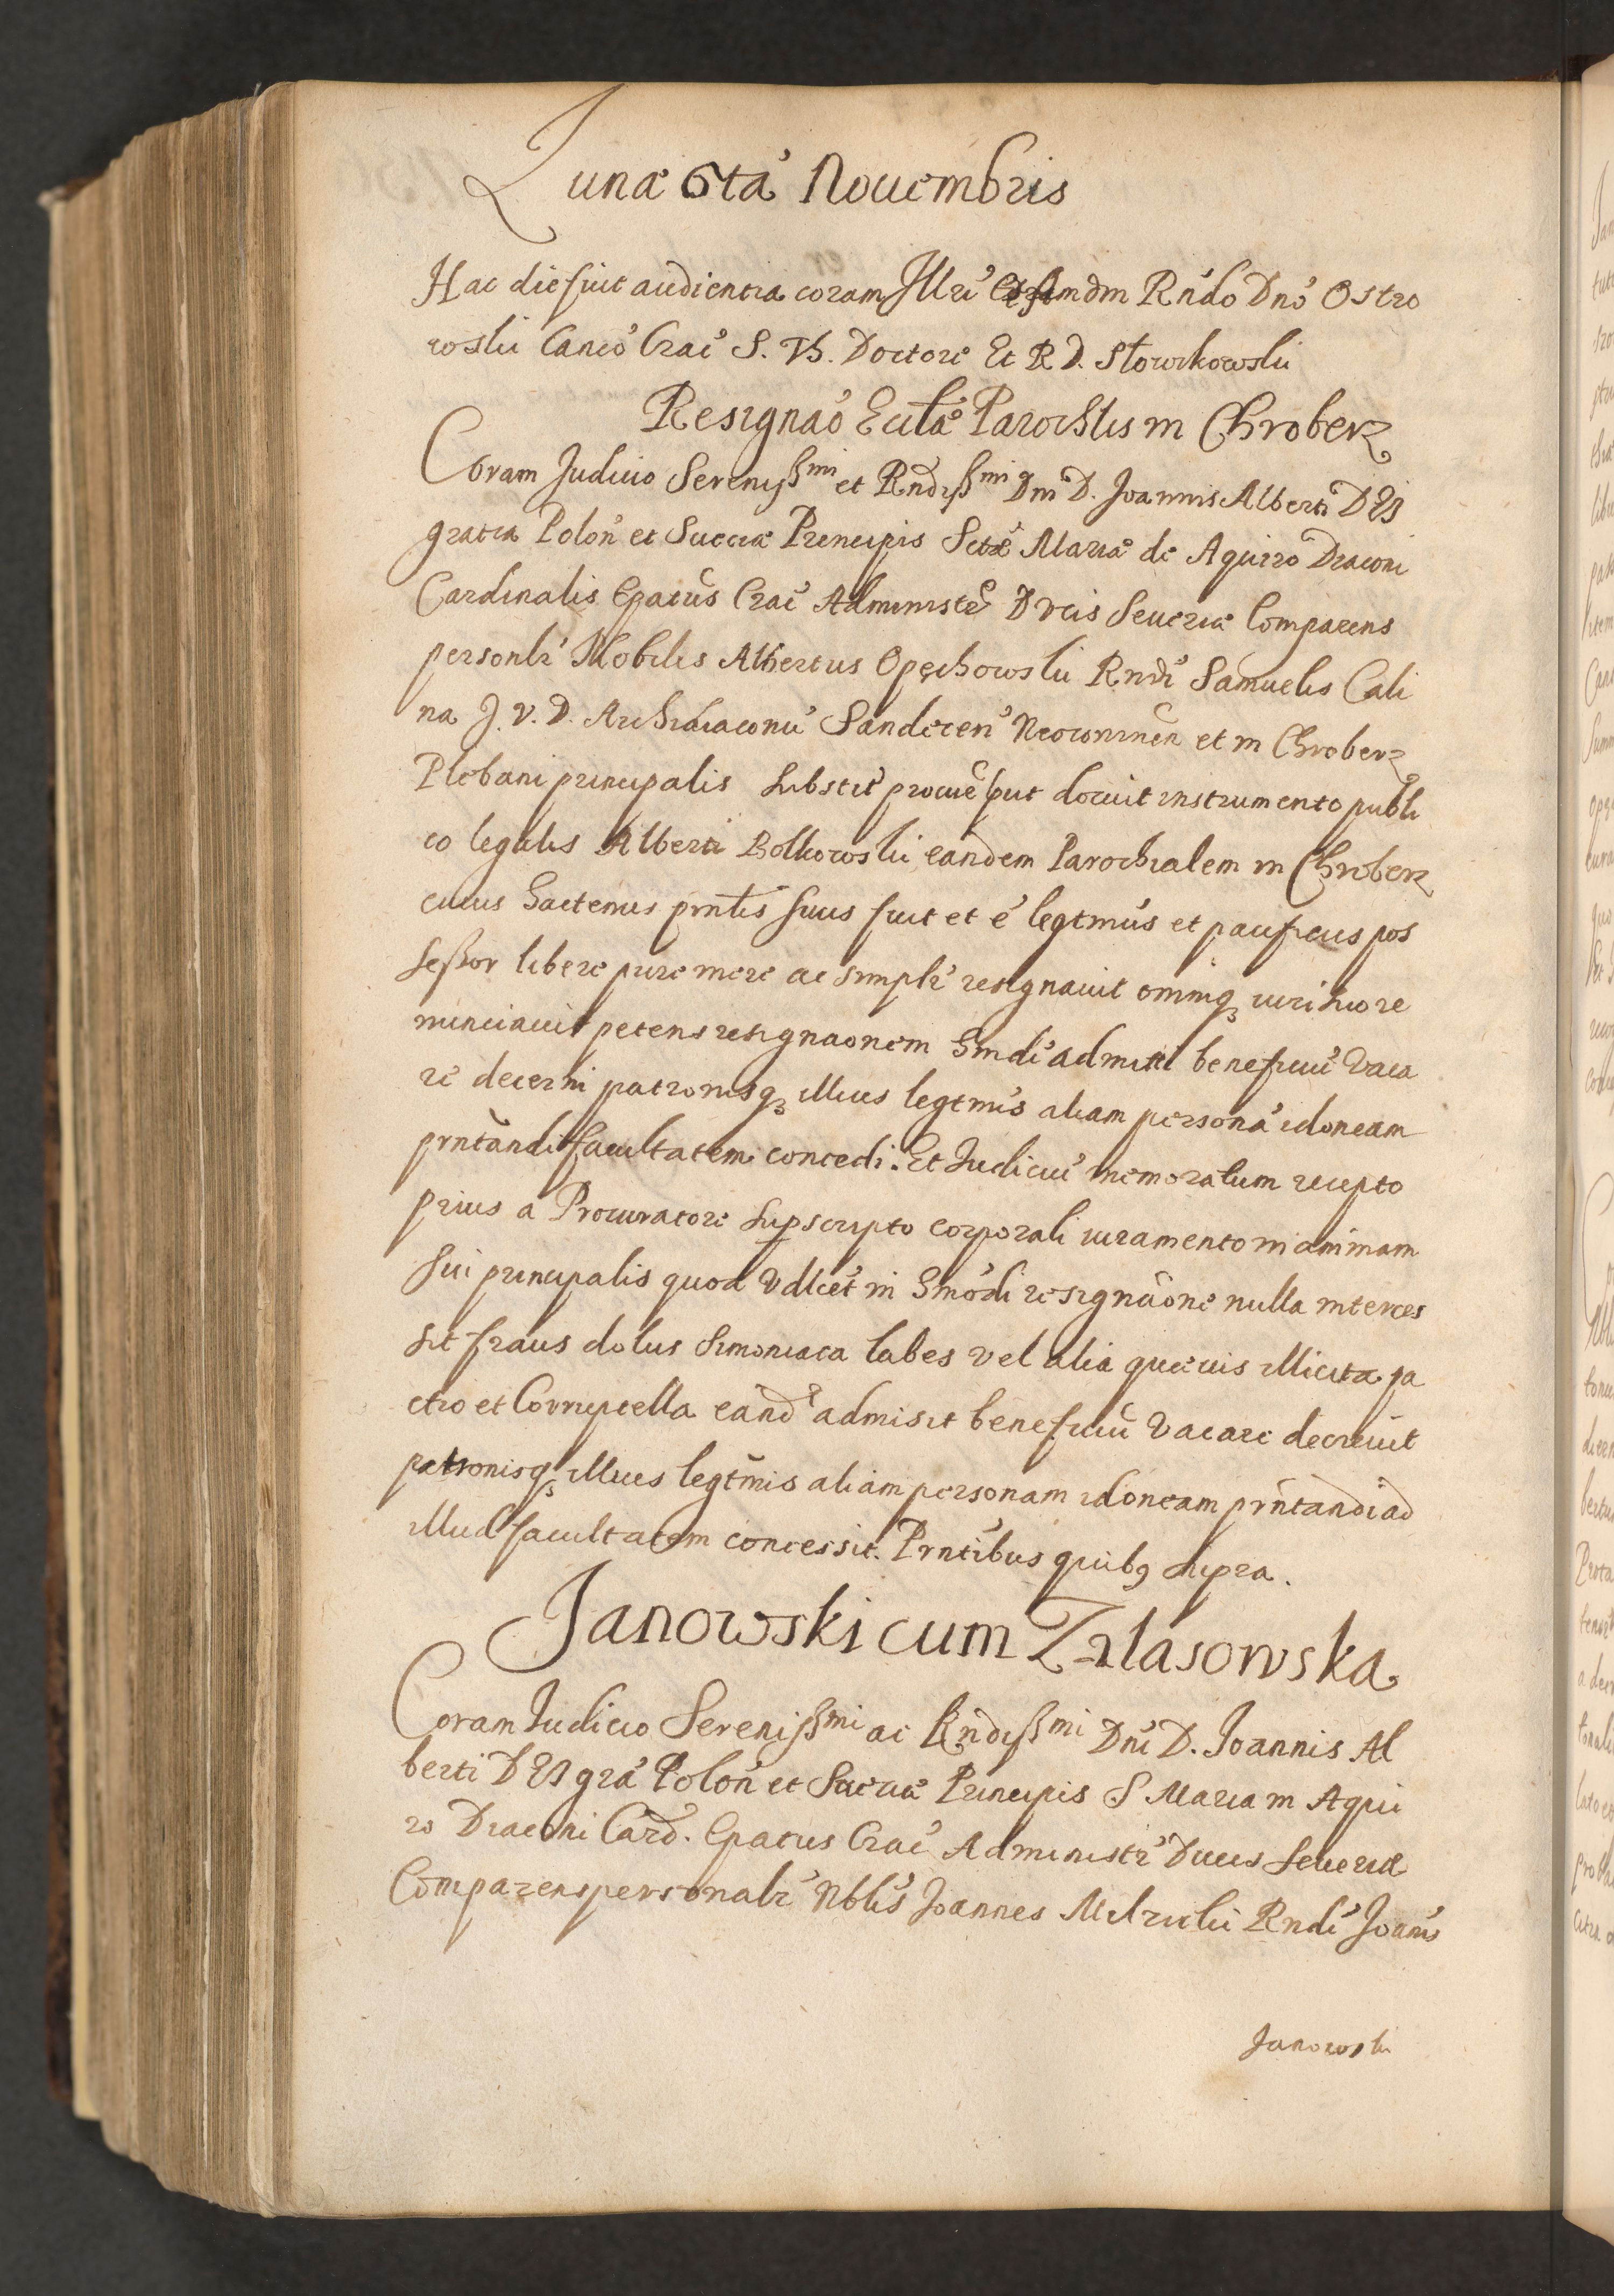 Lunæ 6tá Nouembris
Hac die fuit audientia coram Illri et Amdm Rndo Dno Ostro
wski Canco Crac S. Th. Doctore Et R D. Słowikowski
Resignao Ecclæ Parochlis in Chroberz
Coram Judicio Sereniss^mi et Rndiss^mi Dni D. Joannis Alberti DEI
gratia Polon et Sueciæ Principis Sctæ Mariæ de Aquiro Draconi
Cardinalis Epatus Crac Administr Ducis Seueriæ Comparens
personlr Nobilis Albertus Opęchowski Rndi Samuelis Cali
na J. V. D. Archidiaconi Sandecen Neoconinen et in Chroberz
Plebani principalis substit procur put docuit instrumento publi
co legalis Alberti Bolkowski eandem Parochialem in Chroberz
cuius hactenus prntis suus fuit et e legtmus et pacificus pos
sessor libere pure mere ac simplr resignauit omniq iuri suo re
nunciauit petens resignaonem hmdi admitti beneficiu vaca
re decerni patronisq illius legtmis aliam persona idoneam
prntandi facultatem concedi. Et Judiciu memoratum recepto
prius a Procuratore supscripto corporali iuramento in animam
sui principalis quod vdlcet in hmodi resignaone nulla interces
sit fraus dolus simoniaca labes vel alia quæuis illicita pa
ctio et Corruptella eand admisit beneficiu vacare decreuit
patronisq illius legtmis aliam personam idoneam prntandi ad
illud facultatem concessit. Prntibus quib9 supra.
Janowski cum Zalasowska
Coram Judicio Sereniss^mi ac Rndiss^mi Dni D. Joannis Al
berti DEI gra Polon et Sueciæ Principis S Mariæ in Aqui
ro Draconi Card. Epatus Crac Administr Ducis Seueriæ
Comparens personalr Nblis Joannes Rndi Joanis
Janowski